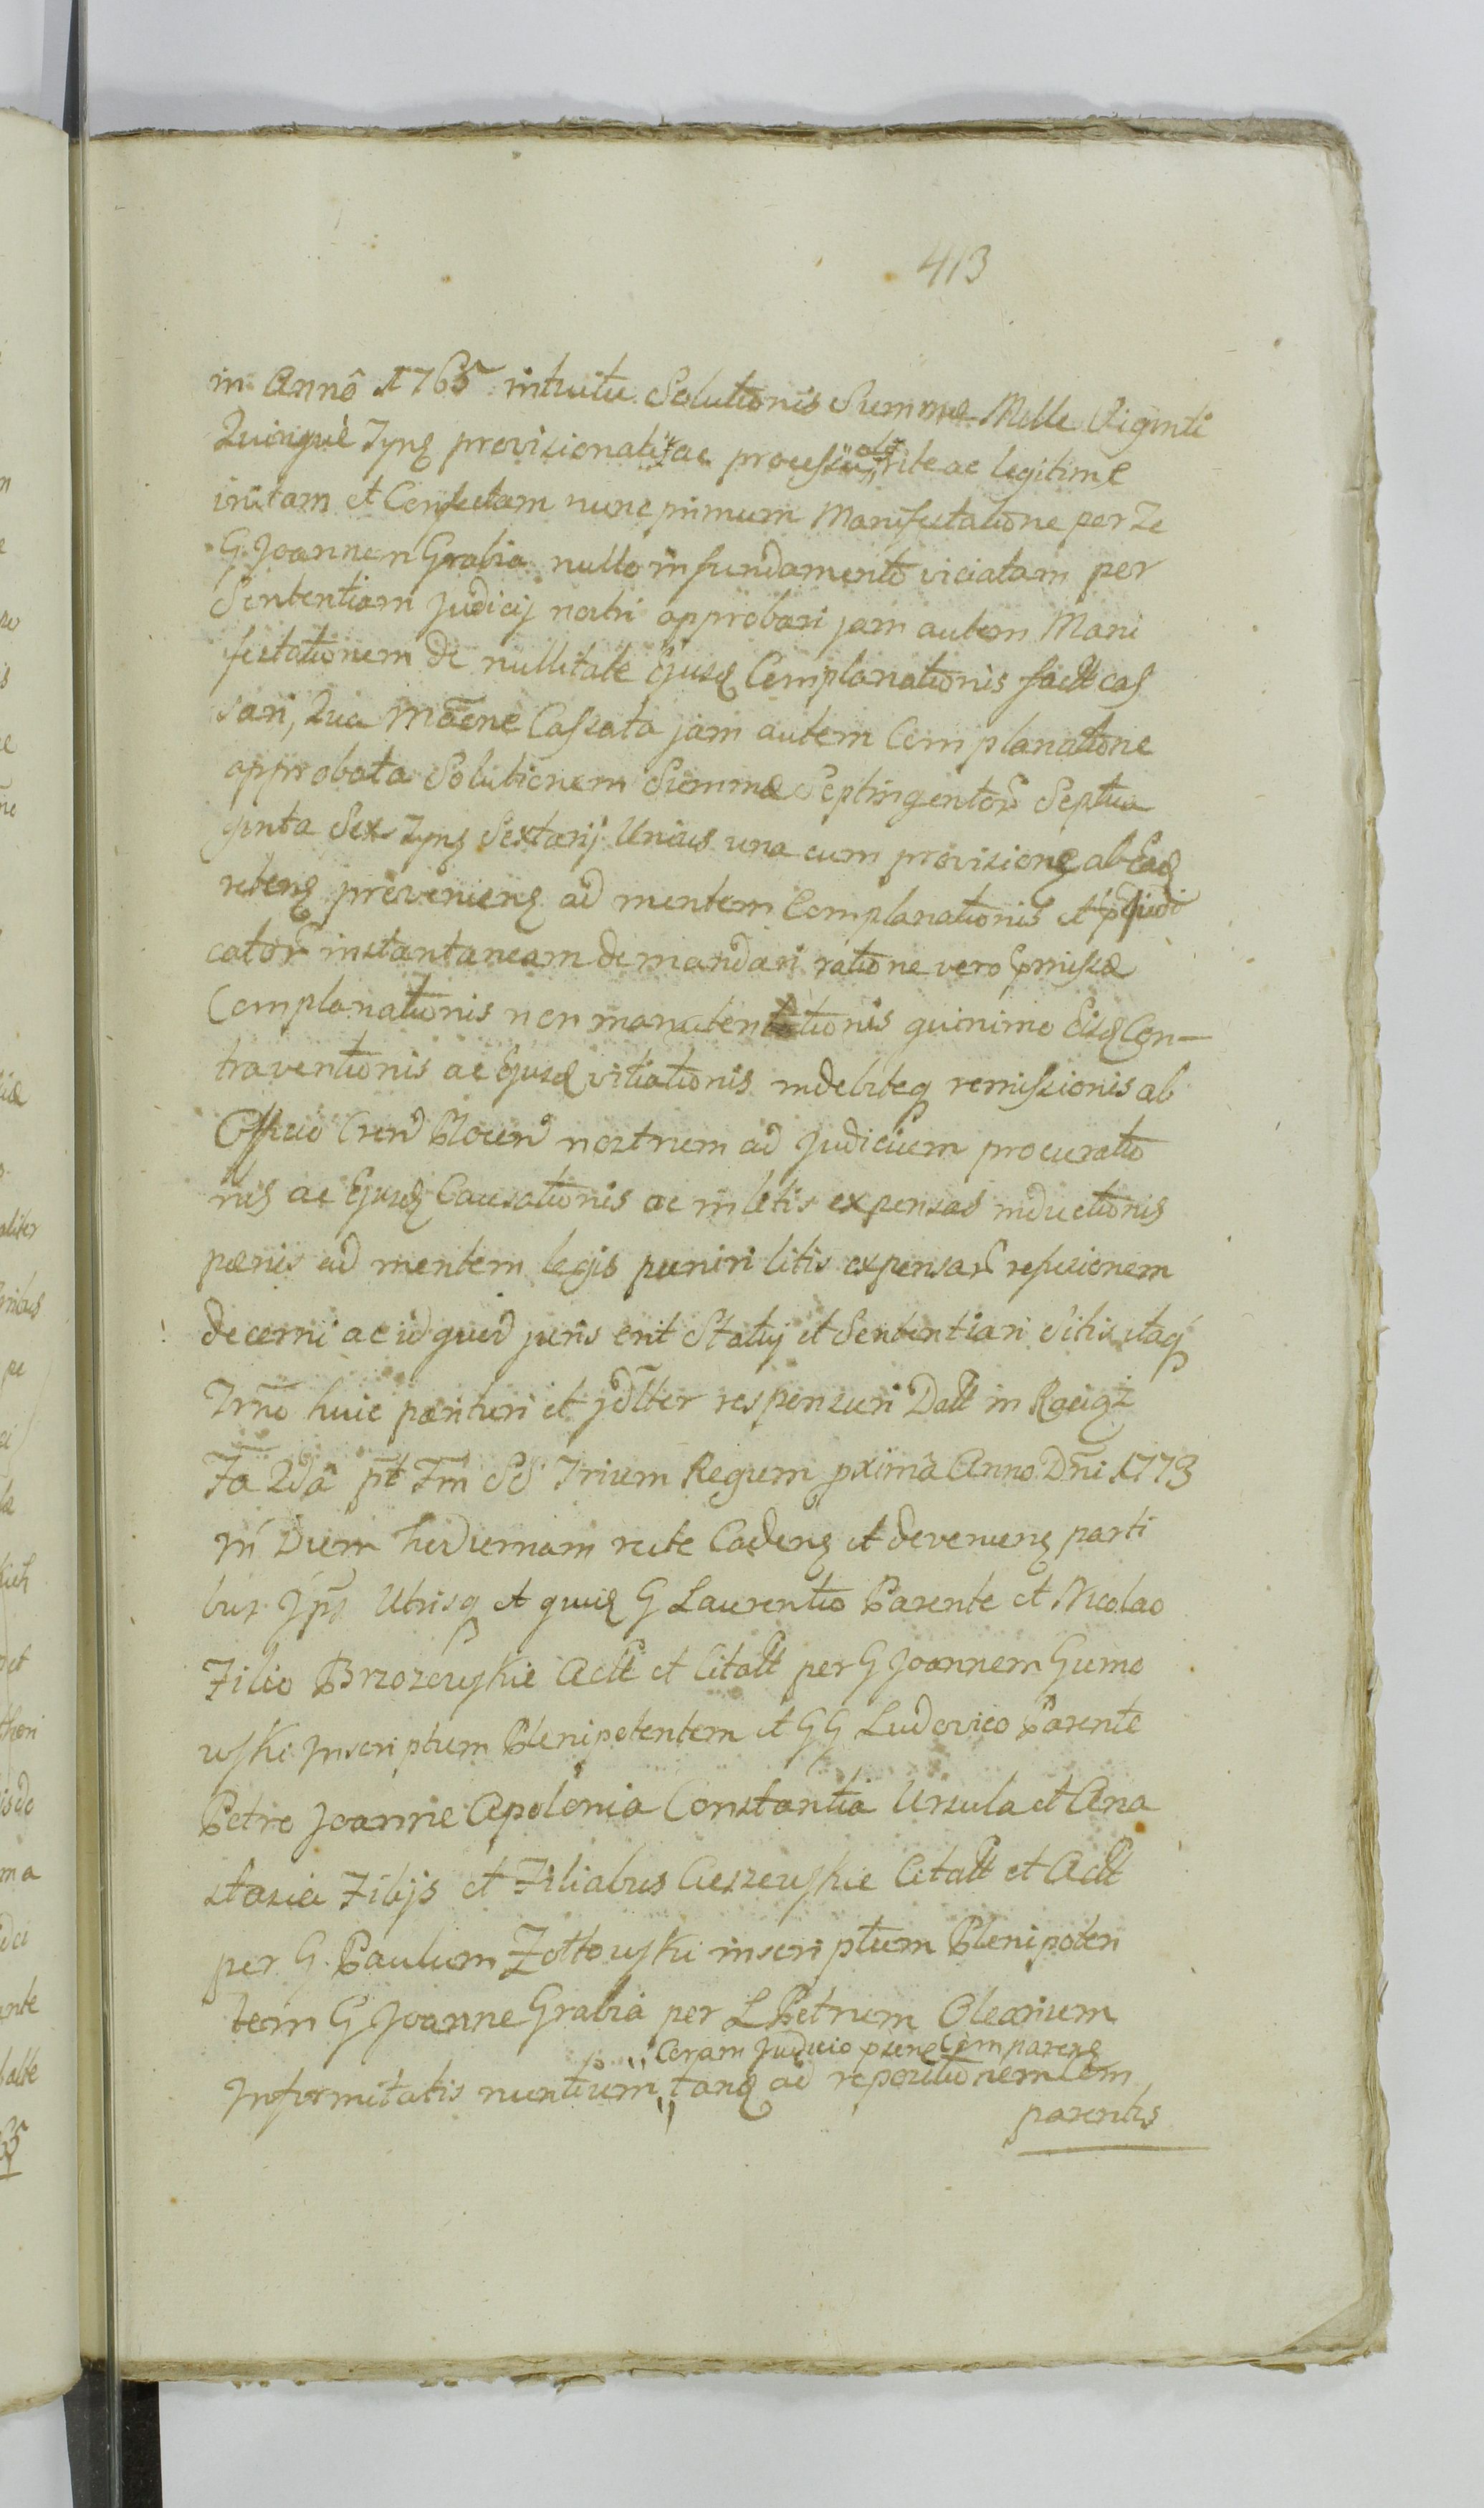 413
in Anno 1765 intuitu Solutionis Summæ Mille Viginti
Quinque Tynf provisionalis ac processu rite ac legitime
initam et Confectam nunc primum Manifestatione per Ze
G Joannem Grabia nullo in fundamento viciatam per
Sententiam Judicij nostri approbari jam autem Mani
festationem de nullitate Ejusd Complanationis factt cas
sari, Qua Maone Cassata jam autem Complanatione
approbata Solutionem Summæ Septingentor Septua
ginta Sex Tynf Sextarij Unius una cum provisione ab Ead
reten provenien ad mentem Complanationis et
cator instantaneam demandari ratione vero præmissæ
Complanationis non manutentionis quinimo Eisd Con-
traventionis ac Ejusd vitiationis indebiteq remissionis ab
Officio Cren Plocen nostrum ad Judicium procuratio
nis ac Ejusd Causationis ac in litis expensas inductionis
pænis ad mentem legis puniri litis expensar refusionem
decerni ac id quod juris erit Statuj et Sententiari Sitis itaq
Trno huic parituri et jdtter responsuri Datt in Raciąż
Fa 2da pt Fm SS Trium Regum pxima Anno Dni 1773
In Diem hodiernam recte Caden et devenien parti
bus Jps Utrisq et quid G Laurentio Parente et Nicolao
Filio Brzozewskie Actt et Citatt per G Joannem Gumo
wski Inscriptum Plenipotentem et GG Ludovico Parente
Petro Joanne Apolonia Constantia Ursula et Ana
stasia Filijs et Filiabus Cieszewskie Citatt et Actt
per G. Paulum Zółtowski inscriptum Plenipoten
tem G Joanne Grabia per L Petrum Olearium
Coram Judicio psene Comparen
Infirmitatis nuntium tanq ad repositionem Com
parentis